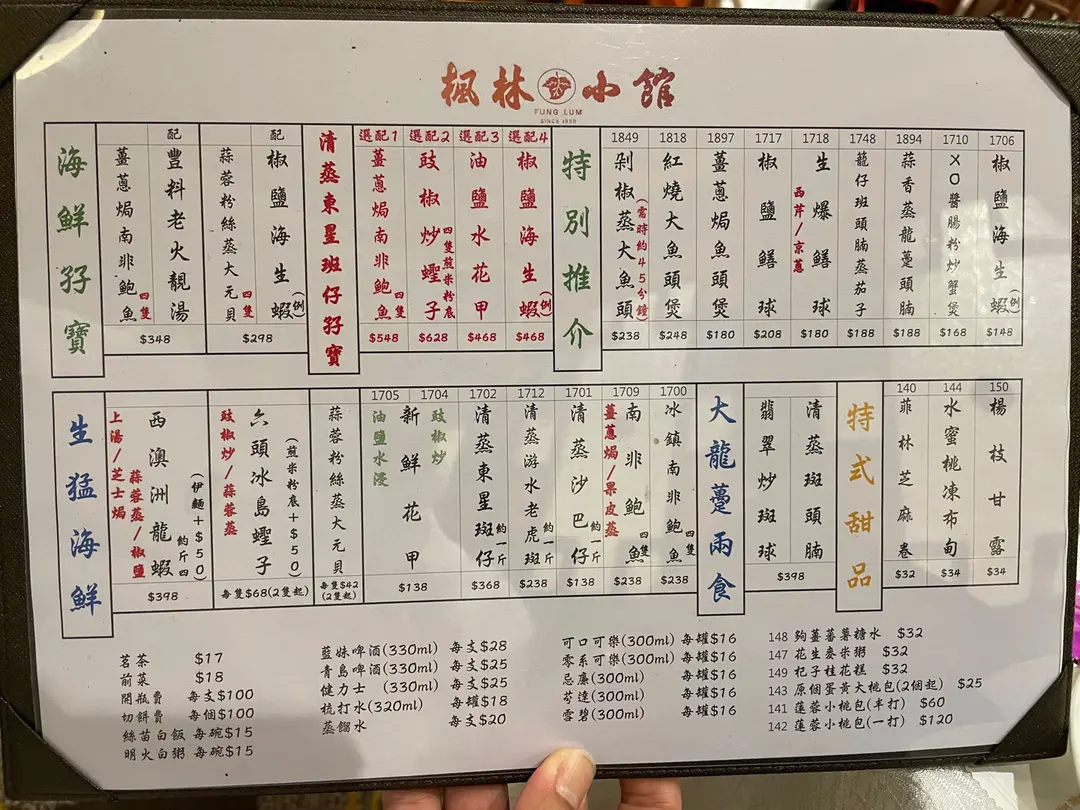 楓林小館
FUNG LUM
SINCE 1950
海鮮孖寶
薑蔥焗南非鮑魚 四隻
配
豐料老火靚湯
$348
蒜蓉粉絲蒸大元貝 四隻
配
椒鹽海生蝦(例)
$298
清蒸東星班仔孖寶
選配1
薑蔥焗南非鮑魚 四隻
$548
選配2
豉椒炒蟶子 四隻煎米粉底
$628
選配3
油鹽水花甲
$468
選配4
椒鹽海生蝦(例)
$468
特別推介
1849
剁椒蒸大魚頭(需時約45分鐘)
$238
1818
紅燒大魚頭煲
$248
1897
薑蔥焗魚頭煲
$180
1717
椒鹽鱔球
$208
1718
生爆鱔球
西芹/京蔥
$180
1748
龍仔班頭腩蒸茄子
$188
1894
蒜香蒸龍躉頭腩
$188
1710
XO醬腸粉炒蟹煲
$168
1706
椒鹽海生蝦(例)
$148
生猛海鮮
上湯/芝士焗
蒜蓉蒸/椒鹽
西澳洲龍蝦 約斤四
(伊麵+$50)
$398
豉椒炒/蒜蓉蒸
六頭冰島蟶子
(煎米粉底+$50)
每隻$68(2隻起)
蒜蓉粉絲蒸大元貝
每隻$42
(2隻起)
1705 1704
油鹽水浸
新鮮花甲
豉椒炒
$138
1702
清蒸東星斑仔 約一斤
$368
1712
清蒸游水老虎斑 約一斤
$238
1701
清蒸沙巴仔 約一斤
$138
1709
薑蔥焗/果皮蒸
南非鮑魚 四隻
$238
1700
冰鎮南非鮑魚 四隻
$238
大龍躉兩食
翡翠炒斑球
清蒸斑頭腩
$398
特式甜品
140
菲林芝麻卷
$32
144
水蜜桃凍布甸
$34
150
楊枝甘露
$34
茗茶 $17
前菜 $18
開瓶費 每支$100
切餅費 每個$100
絲苗白飯 每碗$15
明火白粥 每碗$15
藍妹啤酒(330ml) 每支$28
青島啤酒(330ml) 每支$25
健力士 (330ml) 每支$25
梳打水(320ml) 每罐$18
蒸餾水 每支$20
可口可樂(300ml) 每罐$16
零系可樂(300ml) 每罐$16
忌廉(300ml) 每罐$16
芬達(300ml) 每罐$16
雪碧(300ml) 每罐$16
148 夠薑蕃薯糖水 $32
147 花生麥米粥 $32
149 杞子桂花糕 $32
143 原個蛋黃大桃包(2個起) $25
141 蓮蓉小桃包(半打) $60
142 蓮蓉小桃包(一打) $120